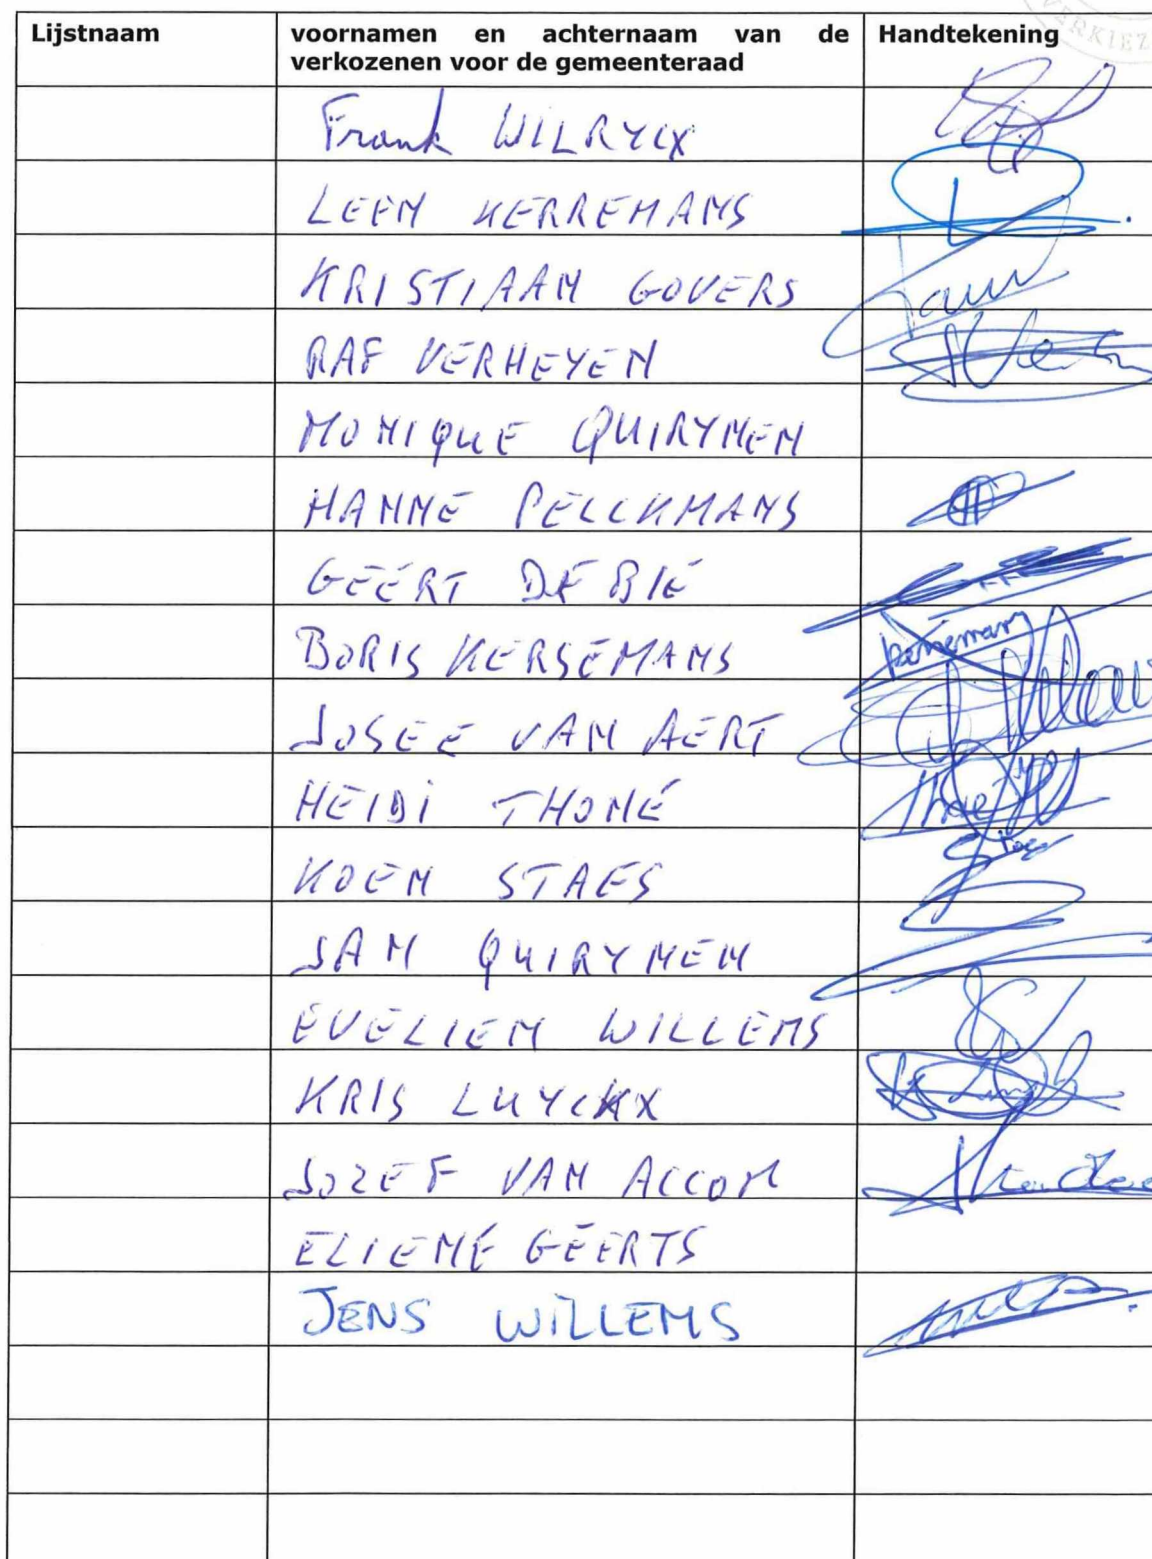 Lijstnaam
voornamen en achternaam van de
verkozenen voor de gemeenteraad
Handtekening
Frank WILRYCX
LEEN KERREMANS
KRISTIAAN GOVERS
RAF VERHEYEN
MONIQUE QUIRYNEN
HANNE PELCKMANS
GEERT DE BIE
BORIS KERSEMANS
JOSEE VAN AERT
HEIDI THONÉ
KOEN STAES
JAN QUIRYNEN
EVELIEN WILLEMS
KRIS LUYCKX
JOZEF VAN ACCOM
ELIENE GEERTS
JENS WILLEMS